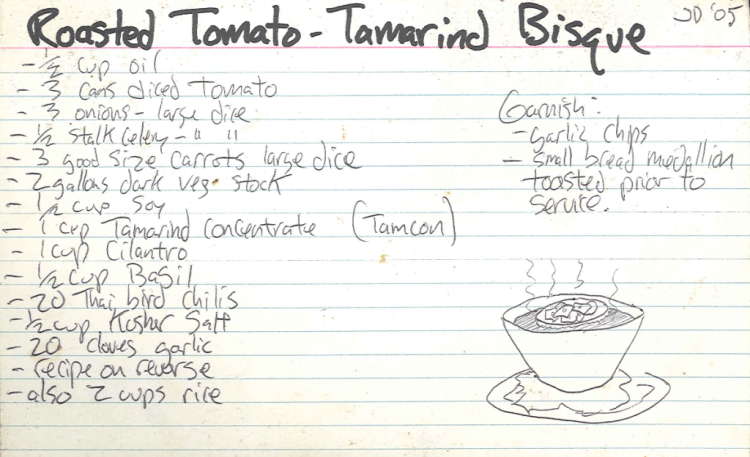 Roasted Tomato-Tamarind Bisque
JD '05
- 1/2 cup oil
- 3 cans diced tomato
- 3 onions - large dice
- 1/2 stalk celery - " "
- 3 good size carrots large dice
- 2 gallons dark veg. stock
- 1/2 cup Soy
- 1 cup Tamarind concentrate (Tamcon)
- 1 cup Cilantro
- 1/2 cup Basil
- 20 Thai bird chilis
- 1/2 cup Kosher Salt
- 20 cloves garlic
- recipe on reverse
- also 2 cups rice
Garnish:
- garlic chips
- small bread medallion
toasted prior to
service.